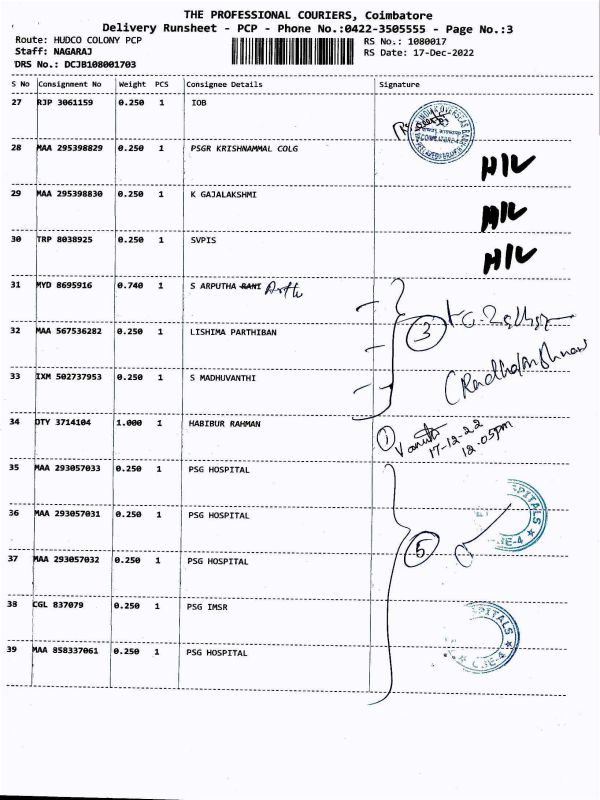 THE PROFESSIONAL COURIERS, Coimbatore
Delivery Runsheet - PCP - Phone No.:0422-3505555 - Page No.:3
Route: HUDCO COLONY PCP RS No.: 1080017
Staff: NAGARAJ RS Date: 17-Dec-2022
DRS No.: DCJB108001703
S No Consignment No Weight PCS Consignee Details Signature
27 RJP 3061159 0.250 1 IOB
28 MAA 295398829 0.250 1 PSGR KRISHNAMMAL COLG H/L
29 MAA 295398830 0.250 1 K GAJALAKSHMI H/L
30 TRP 8038925 0.250 1 SVPIS H/L
31 MYD 8695916 0.740 1 S ARPUTHA RANI
32 MAA 567536282 0.250 1 LISHIMA PARTHIBAN 3
33 IXM 502737953 0.250 1 S MADHUVANTHI
34 DTY 3714104 1.000 1 HABIBUR RAHMAN 1
17-12-22
12.05pm
35 MAA 293057033 0.250 1 PSG HOSPITAL
36 MAA 293057031 0.250 1 PSG HOSPITAL
37 MAA 293057032 0.250 1 PSG HOSPITAL 5
38 CGL 837079 0.250 1 PSG IMSR
39 MAA 858337061 0.250 1 PSG HOSPITAL